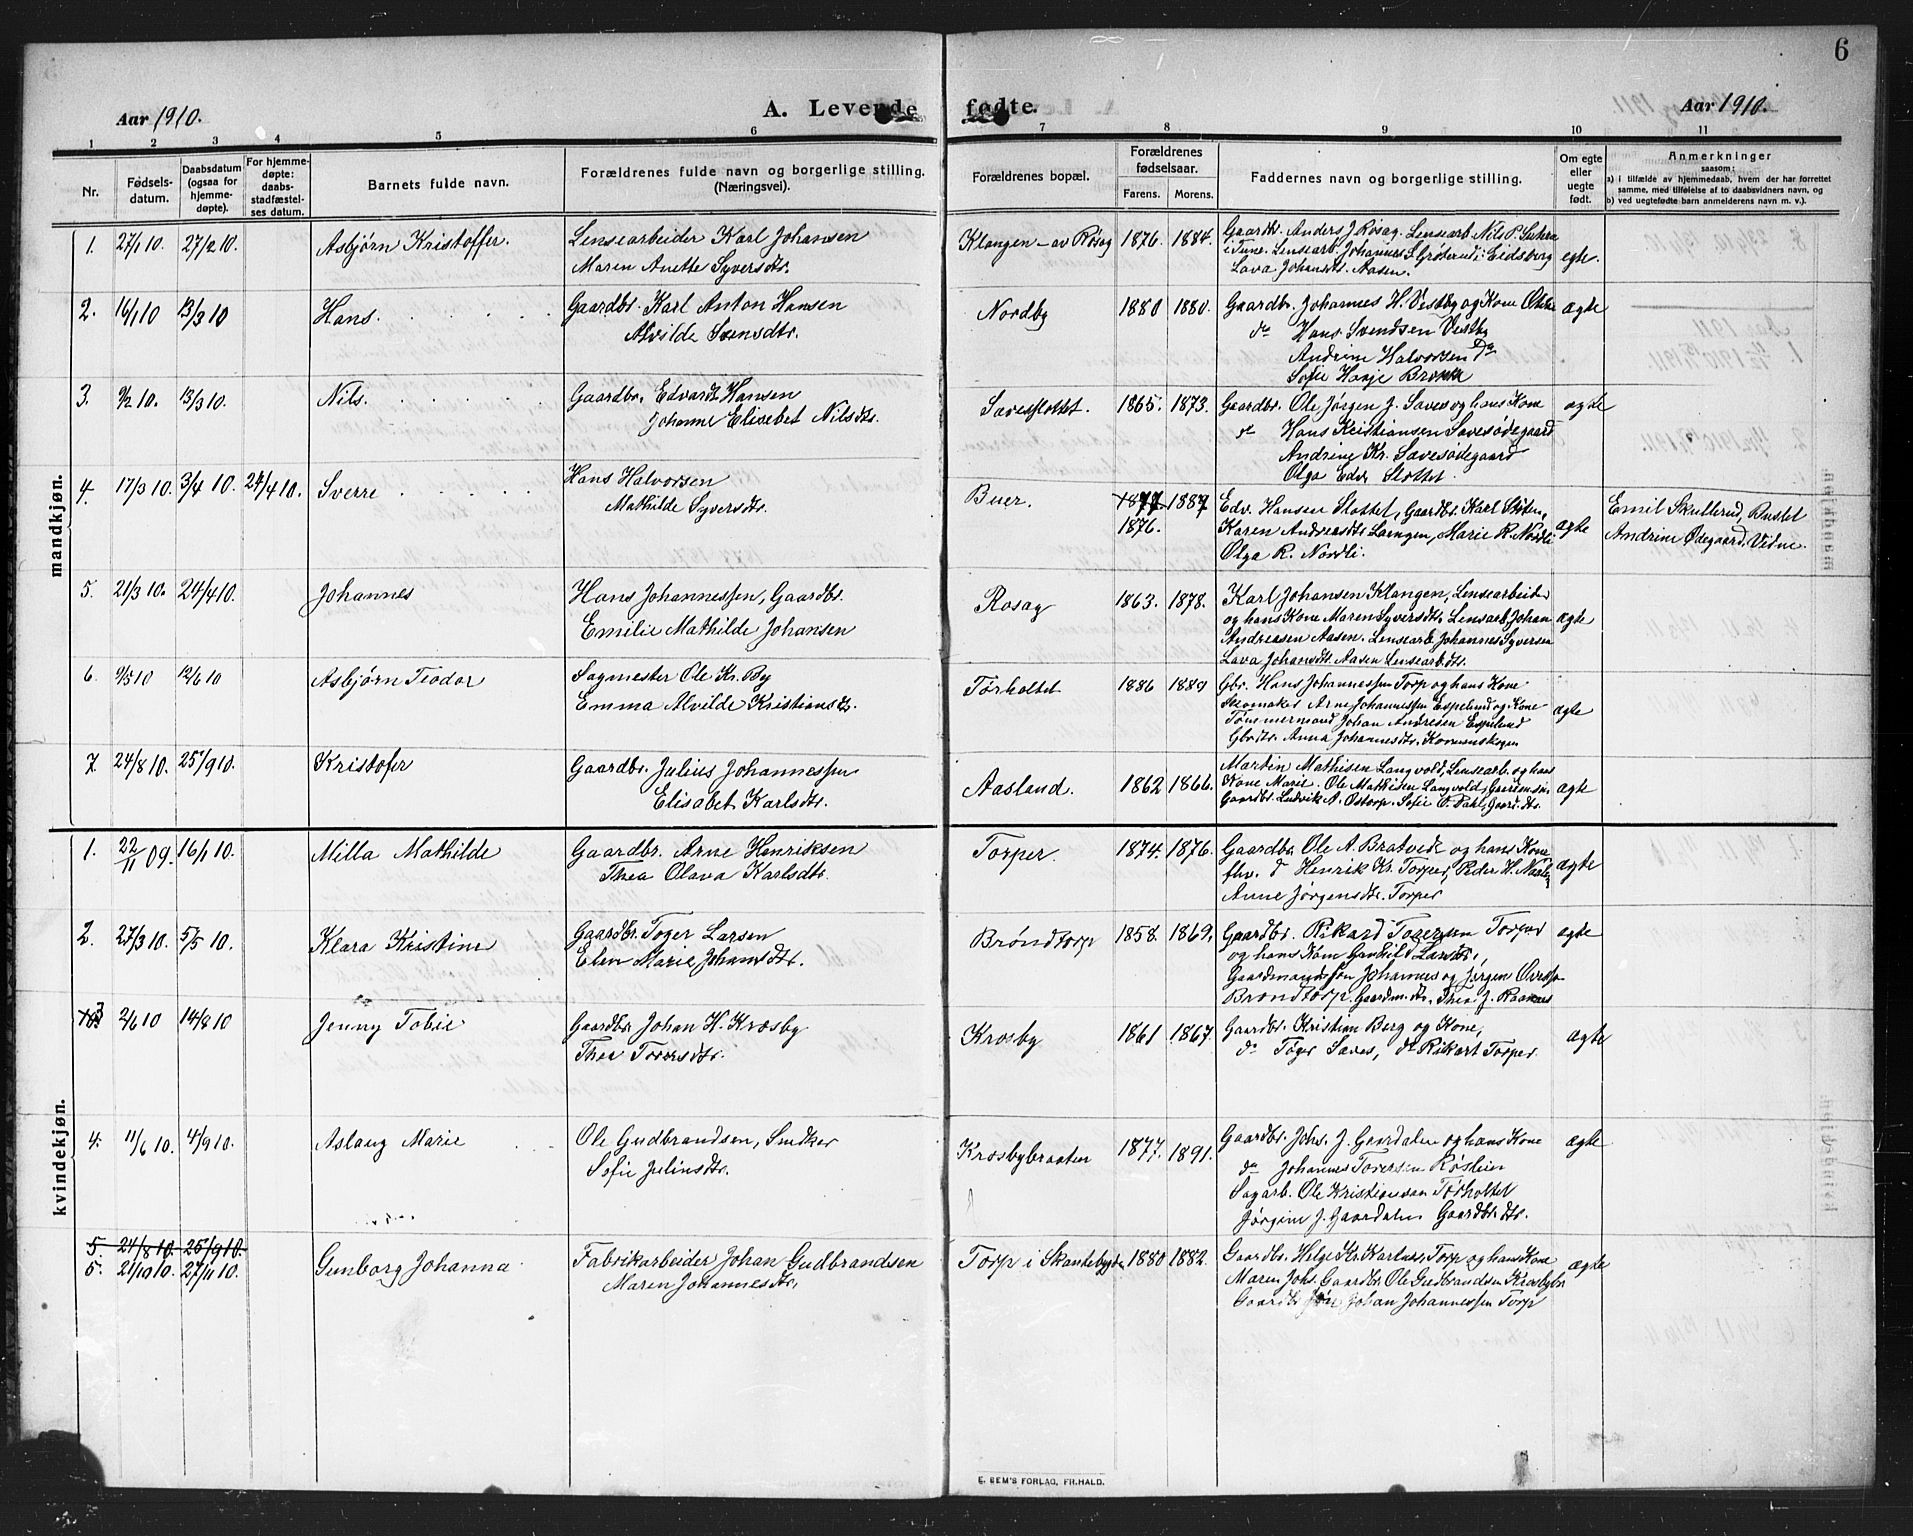 6
Aar 1910.
A. Levende fødte.
Aar 1910.
1 2 3 4 5 6 7 8 9 10 11
Nr.
Fødsels-
datum.
Daabsdatum
(ogsaa for
hjemme-
døpte).
For hjemme-
døpte:
daabs-
stadfæstel-
ses datum.
Barnets fulde navn.
Forældrenes fulde navn og borgerlige stilling.
(Næringsvei).
Forældrenes bopæl.
Forældrenes
fødselsaar.
Farens. Morens.
Faddernes navn og borgerlige stilling.
Om egte
eller
uegte
født.
Anmerkninger
saasom:
a) i tilfælde av hjemmedaab, hvem der har forrettet
samme, med tilføielse af to daabsvidners navn, og
b) ved uegtefødte barn anmelderens navn m. v.).
mandkjøn.
1. 27/1 10. 27/2 10. Asbjørn Kristoffer.
Lensearbeider Karl Johansen
Maren Anette Syversdtr.
Klangen – av Røsag 1876. 1884.
Gaardbr. Anders J. Rosag. Lensearb. Nils P.
i Tune. Lensearb. Johannes S. Grøterud i Eidsberg
Lava Johansdtr. Aasen.
egte.
2. 16/1 10 13/3 10 Hans.
Gaardbr. Karl Anton Hansen
Alvilde Svensdtr.
Nordby 1880 1880.
Gaardbr. Johannes H. Vestby og Kone
do Hans Svendsen Vestby
Andrine Halvorsen Do
Sofie Hansje
ægte
3. 9/2 10. 13/3 10 Nils.
Gaardbr. Edvardt Hansen
Johanne Elisebet Nilsdtr.
Savesslottet. 1865. 1873.
Gaardbr. Ole Jørgen J. Saves og hans Kone
do Hans Kristiansen Savesødegaard
Andrine Kr. Savesødegaard
Olga Edv. Slottet.
ægte
4. 17/3 10. 3/4 10. 24/4 10. Sverre
Hans Halvorsen
Mathilde Syversdtr.
Buer. 1877 1887
1876.
Edv. Hansen Slottet, Gaardbr. Karl Sloten,
Karen Andreasdtr. Langen, Marie R. Nordli
Olga R. Nordli.
ægte
Emil Skullerud, Bustet
Andrine Ødegaard, Vidne.
5. 21/3 10. 24/4 10. Johannes
Hans Johannessen, Gaardbr.
Emilie Mathilde Johansen
Rosag 1863. 1878.
Karl Johansen Klangen, Lensearbeider
og hans Kone Maren Syversdtr, Lensearb. Johan
Andreasen Aasen. Lensearb. Johannes Syversen
Lava Johansdtr. Aasen Lensearbdtr.
ægte
6. 9/5 10 12/6 10 Asbjørn Teodor
Sagmester Ole Kr. By
Emma Alvilde Kristiansdtr.
Tørholtet 1886 1889
Gbr. Hans Johannessen Torp og hans Kone
Skomaker Arne Johannessen Espelund og Kone
Tømmermand Johan Andresen Espelund
Gbrdtr. Anna Johannesdtr.
ægte
7. 24/8 10. 25/9 10. Kristofer
Gaardbr. Julius Johannessen
Elisabet Karlsdtr.
Aasland. 1862 1866.
Martin Mathisen Langvold, Lensearb. og hans
Kone Marie. Ole Mathisen Langvold,
Gaardbr. Ludvik A. Ostorp. Sofie O. Dahl, Gaardbr. dtr.
ægte
kvindekjøn.
1. 22/11 09. 16/1 10. Milla Mathilde
Gaardbr. Arne Henriksen
Thea Olava Karlsdtr.
Torper. 1874. 1876.
Gaardbr. Ole A. Bratvede og hans Kone
fhv. d Henrik Kr. Torper, Peder H.
Anne Jørgensdtr. Torper
ægte
2. 27/3 10. 5/5 10. Klara Kristine
Gaardbr. Toger Larsen
Elen Marie Johansdtr.
Brøndtorp 1858. 1869.
Gaardbr. Rikard Togersen Torper
og hans Kone Gunhild Larsdtr.,
Gaardmandssøn Johannes og Jørgen
Brøndtorp. Gaardm. dtr. Thea J.
ægte
3 2/6 10 14/8 10 Jenny Tobie
Gaardbr. Johan H. Krosby
Thea Toversdtr.
Krosby 1861 1867.
Gaardbr. Kristian Berg og Kone,
do Toger Saves, do Rikart Torper.
ægte
4. 11/6 10. 4/9 10. Aslaug Marie
Ole Gudbrandsen, Smdker
Sofie Juliusdtr.
Krosbybraaten 1877. 1891.
Gaardbr. Johs. J. Gaardalen og hans Kone
do Johannes Toversen Røslien
Sagarb. Ole Kristiansen Tørholtet
Jørgine J. Gaardalen Gaardbr. dtr.
ægte
5. 24/8 10. 25/9 10.
5. 21/10 10. 27/11 10. Gunborg Johanna
Fabrikarbeider Johan Gudbrandsen
Maren Johannesdtr.
Torp i Skantebygden 1880 1882.
Gaardbr. Helge Kr. Karlsen, Torp og hans Kone
Maren Johs. Gaardbr. Ole Gudbrandsen Krosbybr.
Gaardbr søn Johan Johannessen Torp
ægte
E. SEM'S FORLAG, FR.HALD.